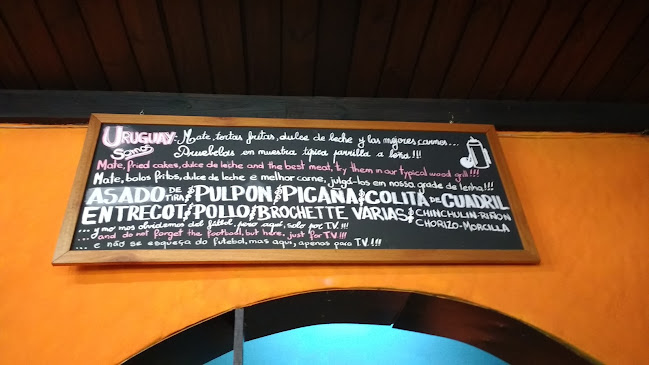 URUGUAY: Mate, tortas fritas, dulce de leche y las mejores carnes...
Somos Pruebelas en nuestra típica parrilla a leña!!!
Mate, fried cakes, dulce de leche and the best meat, try them in our typical wood grill!!!
Mate, bolos fritos, dulce de leche e melhor carne, julgá-los em nossa grade de lenha!!!
ASADO DE TIRA PULPON PICAÑA COLITA DE CUADRIL
ENTRECOT POLLO BROCHETTE VARIAS CHINCHULIN-RIÑON
CHORIZO-MORCILLA
...y no nos olvidemos del fútbol, pero aquí, solo por T.V.!!!
...and do not forget the football, but here, just for T.V.!!!
... e não se esqueça do futebol, mas aqui, apenas para T.V.!!!